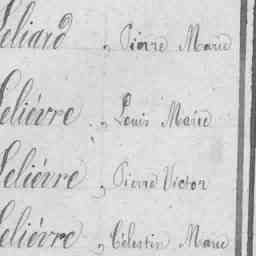 Leliard „ Pierre Marie
Lelièvre „ Louis Marie
Lelièvre „ Pierre Victor
Lelièvre „ Célestin Marie